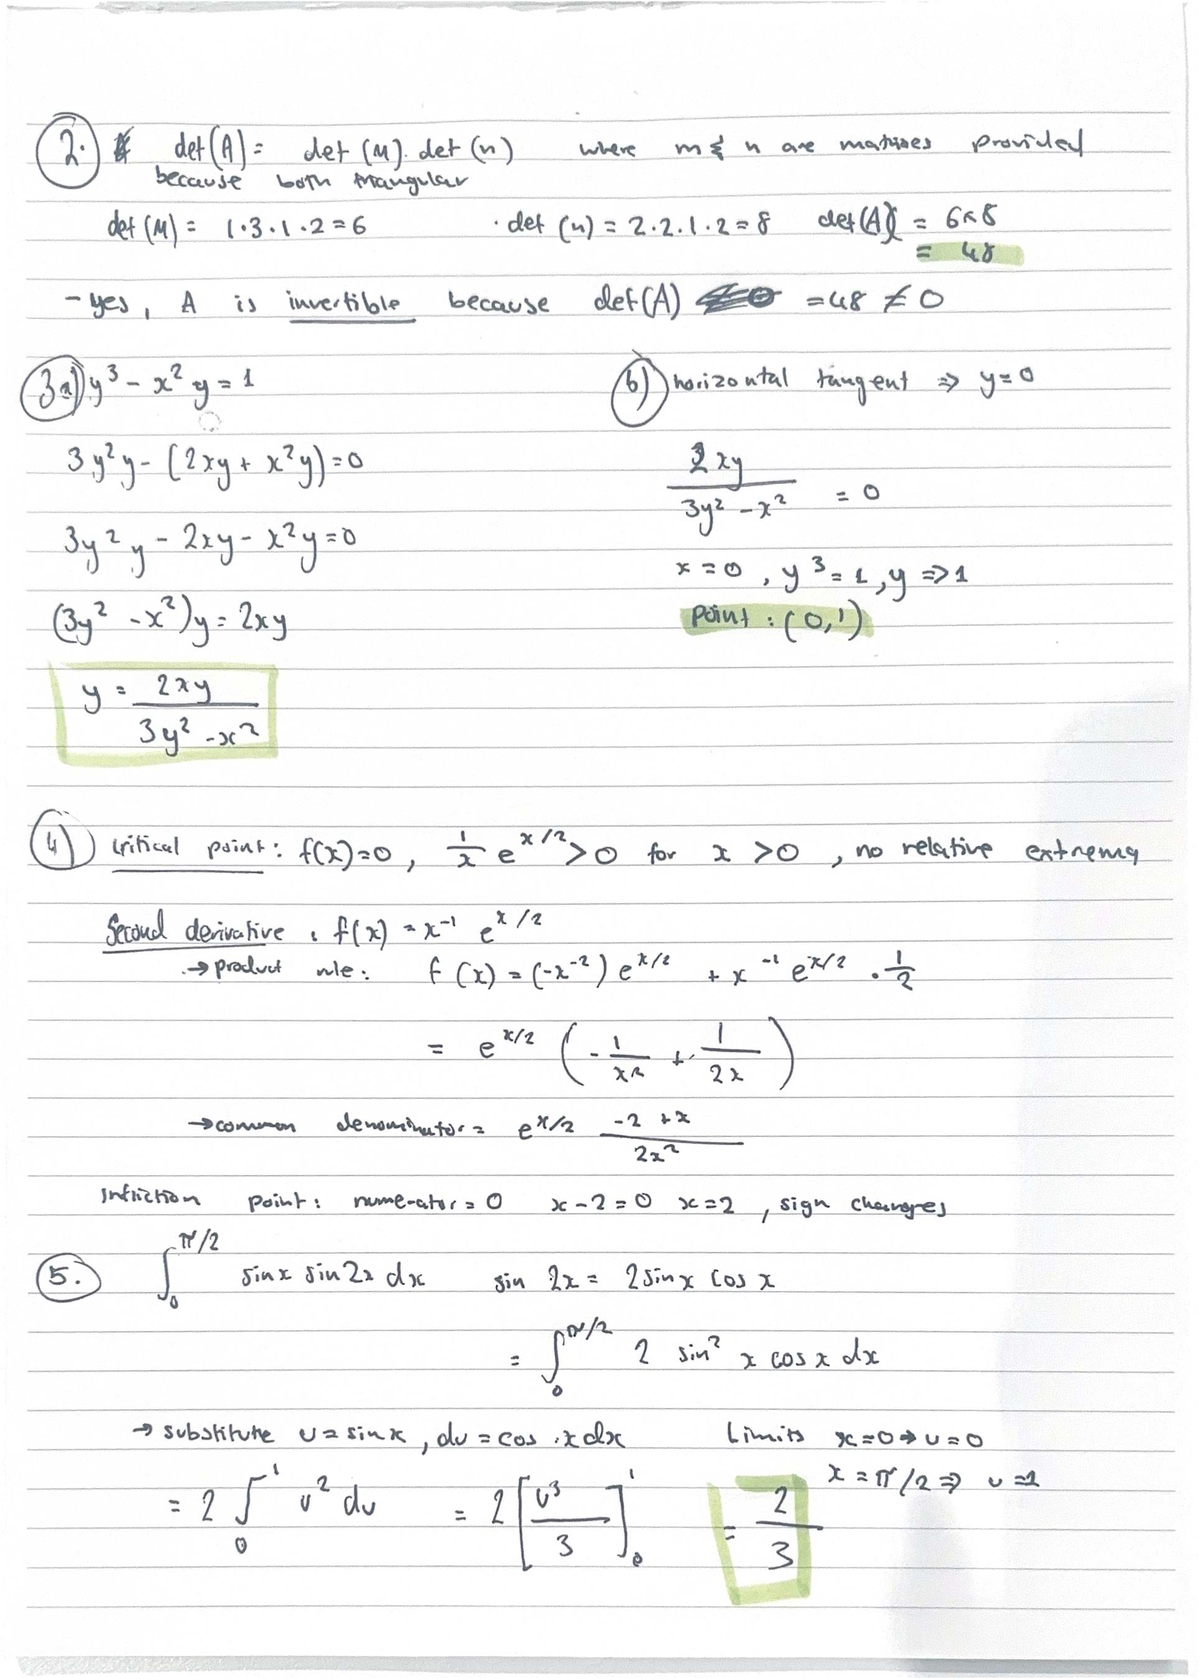 2. det(A) = det (M). det (n) where m & n are matrixes provided
because both triangular
det (M) = 1·3·1·2=6 · det (n) = 2·2·1·2=8 det(A) = 6×8
= 48
- yes, A is invertible because det(A) =48 ≠ 0
3a) y³ - x² y = 1
3y²y - (2xy + x²y)=0
3y²y - 2xy - x²y=0
(3y² - x²)y = 2xy
y = 2xy / 3y² - x²
b) horizontal tangent ⇒ y=0
2xy / 3y² - x² = 0
x = 0, y³ = 1, y ⇒ 1
point : (0,1)
4) critical point: f(x)=0, 1/x e^x/2 > 0 for x >0, no relative extrema
Second derivative : f(x) = x⁻¹ e^x/2
→ product rule: f (x) = (-x⁻²) e^x/2 + x⁻¹ e^x/2 · 1/2
= e^x/2 (- 1/x² + 1/2x)
→ common denominator = e^x/2 -2 + x / 2x²
Infliction point: numerator = 0 x - 2 = 0 x = 2, sign changes
5. ∫₀^π/2 sinx sin2x dx sin 2x = 2sinx cos x
= ∫₀^π/2 2 sin² x cos x dx
→ substitute u = sinx, du = cos x dx Limits x=0 ⇒ u=0
x = π/2 ⇒ u=1
= 2 ∫₀¹ u² du = 2 [u³/3]₀¹ = 2/3